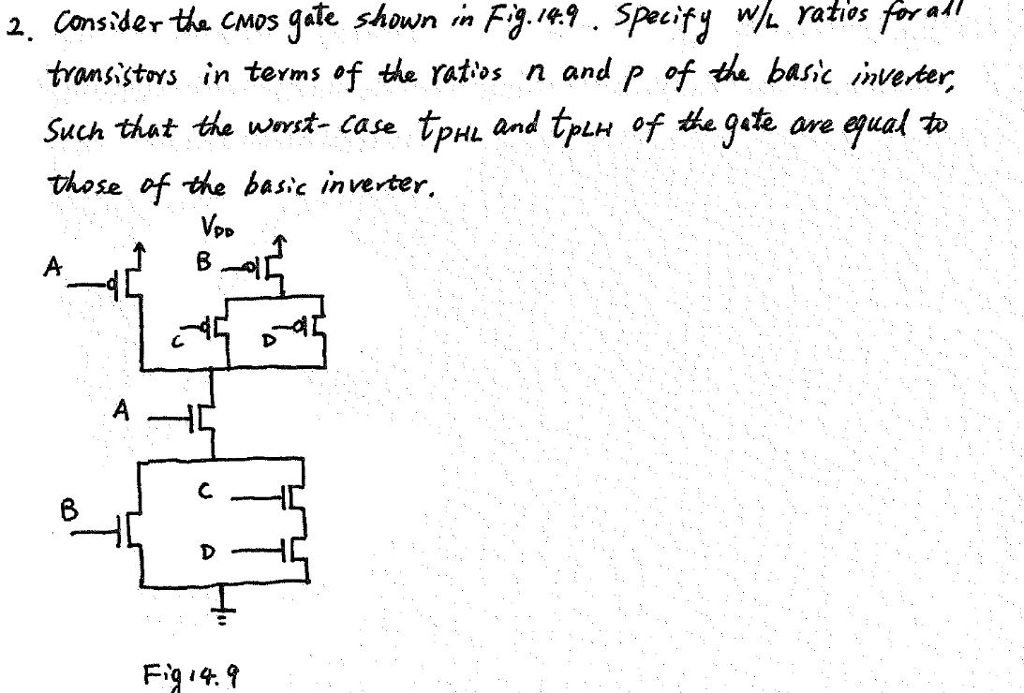 2. Consider the CMOS gate shown in Fig. 14.9. Specify W/L ratios for all
transistors in terms of the ratios n and p of the basic inverter,
Such that the worst-case tPHL and tPLH of the gate are equal to
those of the basic inverter.
VDD
A
B
C
D
A
C
B
D
Fig 14.9